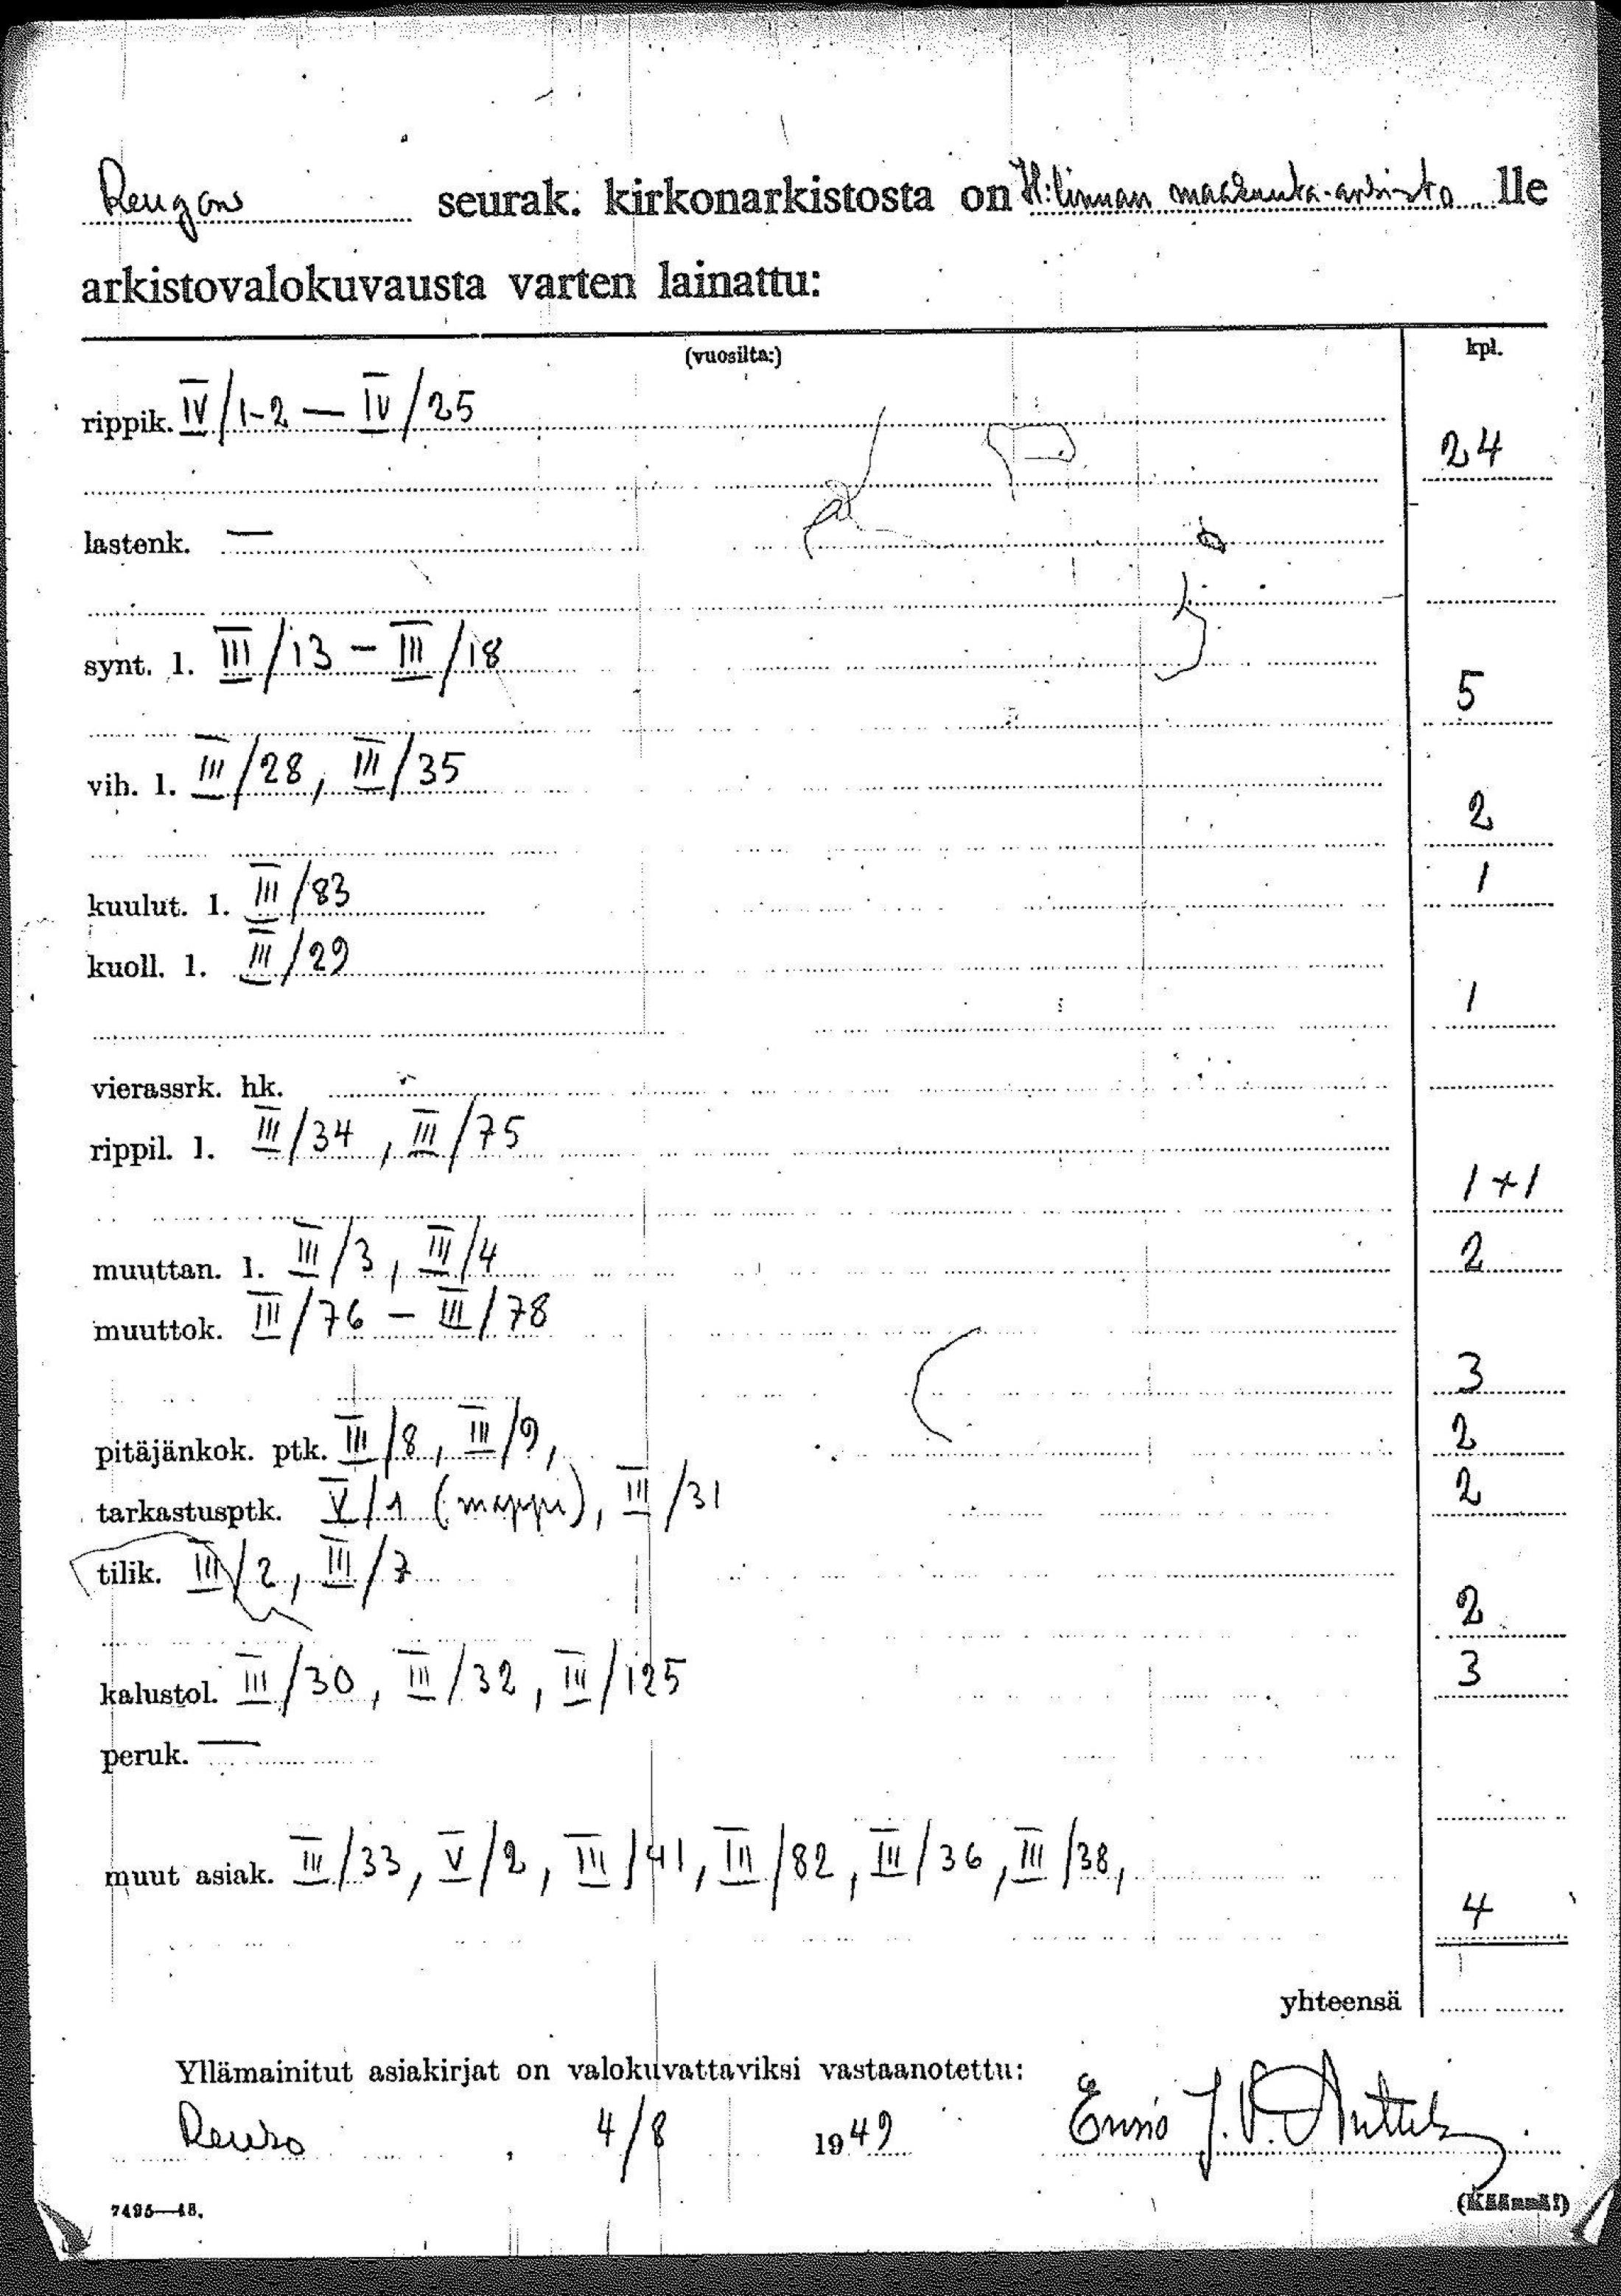 Rengon seurak. kirkonarkistosta on H:linnan maakunta-arkisto lle
arkistovalokuvausta varten lainattu:
(vuosilta:) kpl.
rippik. IV/1-2 — IV/25
24
lastenk. —
synt. l. III/13 - III/18
5
vih. l. III/28, III/35
2
kuulut. l. III/83 1
kuoll. l. III/29
1
vierassrk. hk.
rippil. l. III/34, III/75
1+1
muuttan. l. III/3, III/4 2
muuttok. III/76 - III/78
3
pitäjänkok. ptk. III/8, III/9, 2
tarkastusptk. V/1 (mappi), III/31 2
tilik. III/2, III/7
2
kalustol. III/30, III/32, III/125 3
peruk. —
muut asiak. III/33, V/2, III/41, III/82, III/36, III/38,
4
yhteensä
Yllämainitut asiakirjat on valokuvattaviksi vastaanotettu:
Renko, 4/8 1949 Ensio J. V. Anttila
7495—48. (Käännä!)